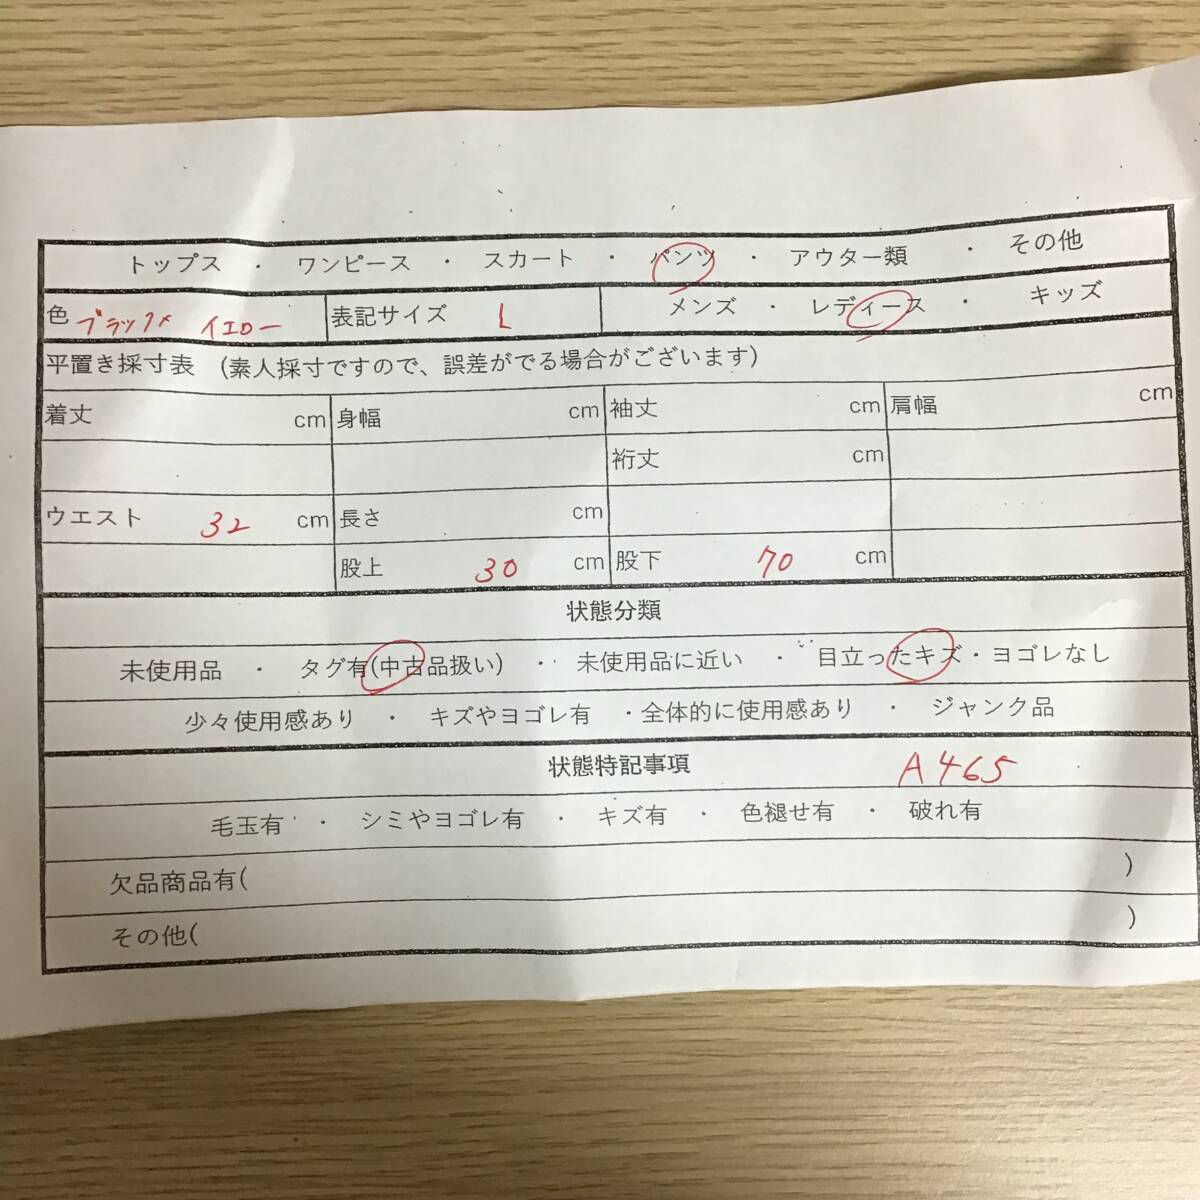 トップス ・ ワンピース ・ スカート ・ パンツ ・ アウター類 ・ その他
色 ブラック× イエロー 表記サイズ L メンズ ・ レディース ・ キッズ
平置き採寸表 (素人採寸ですので、誤差がでる場合がございます)
着丈 cm 身幅 cm 袖丈 cm 肩幅 cm
裄丈 cm
ウエスト 32 cm 長さ cm
股上 30 cm 股下 70 cm
状態分類
未使用品 ・ タグ有(中古品扱い) ・ 未使用品に近い ・ 目立ったキズ・ヨゴレなし
少々使用感あり ・ キズやヨゴレ有 ・全体的に使用感あり ・ ジャンク品
状態特記事項 A465
毛玉有 ・ シミやヨゴレ有 ・ キズ有 ・ 色褪せ有 ・ 破れ有
欠品商品有( )
その他( )